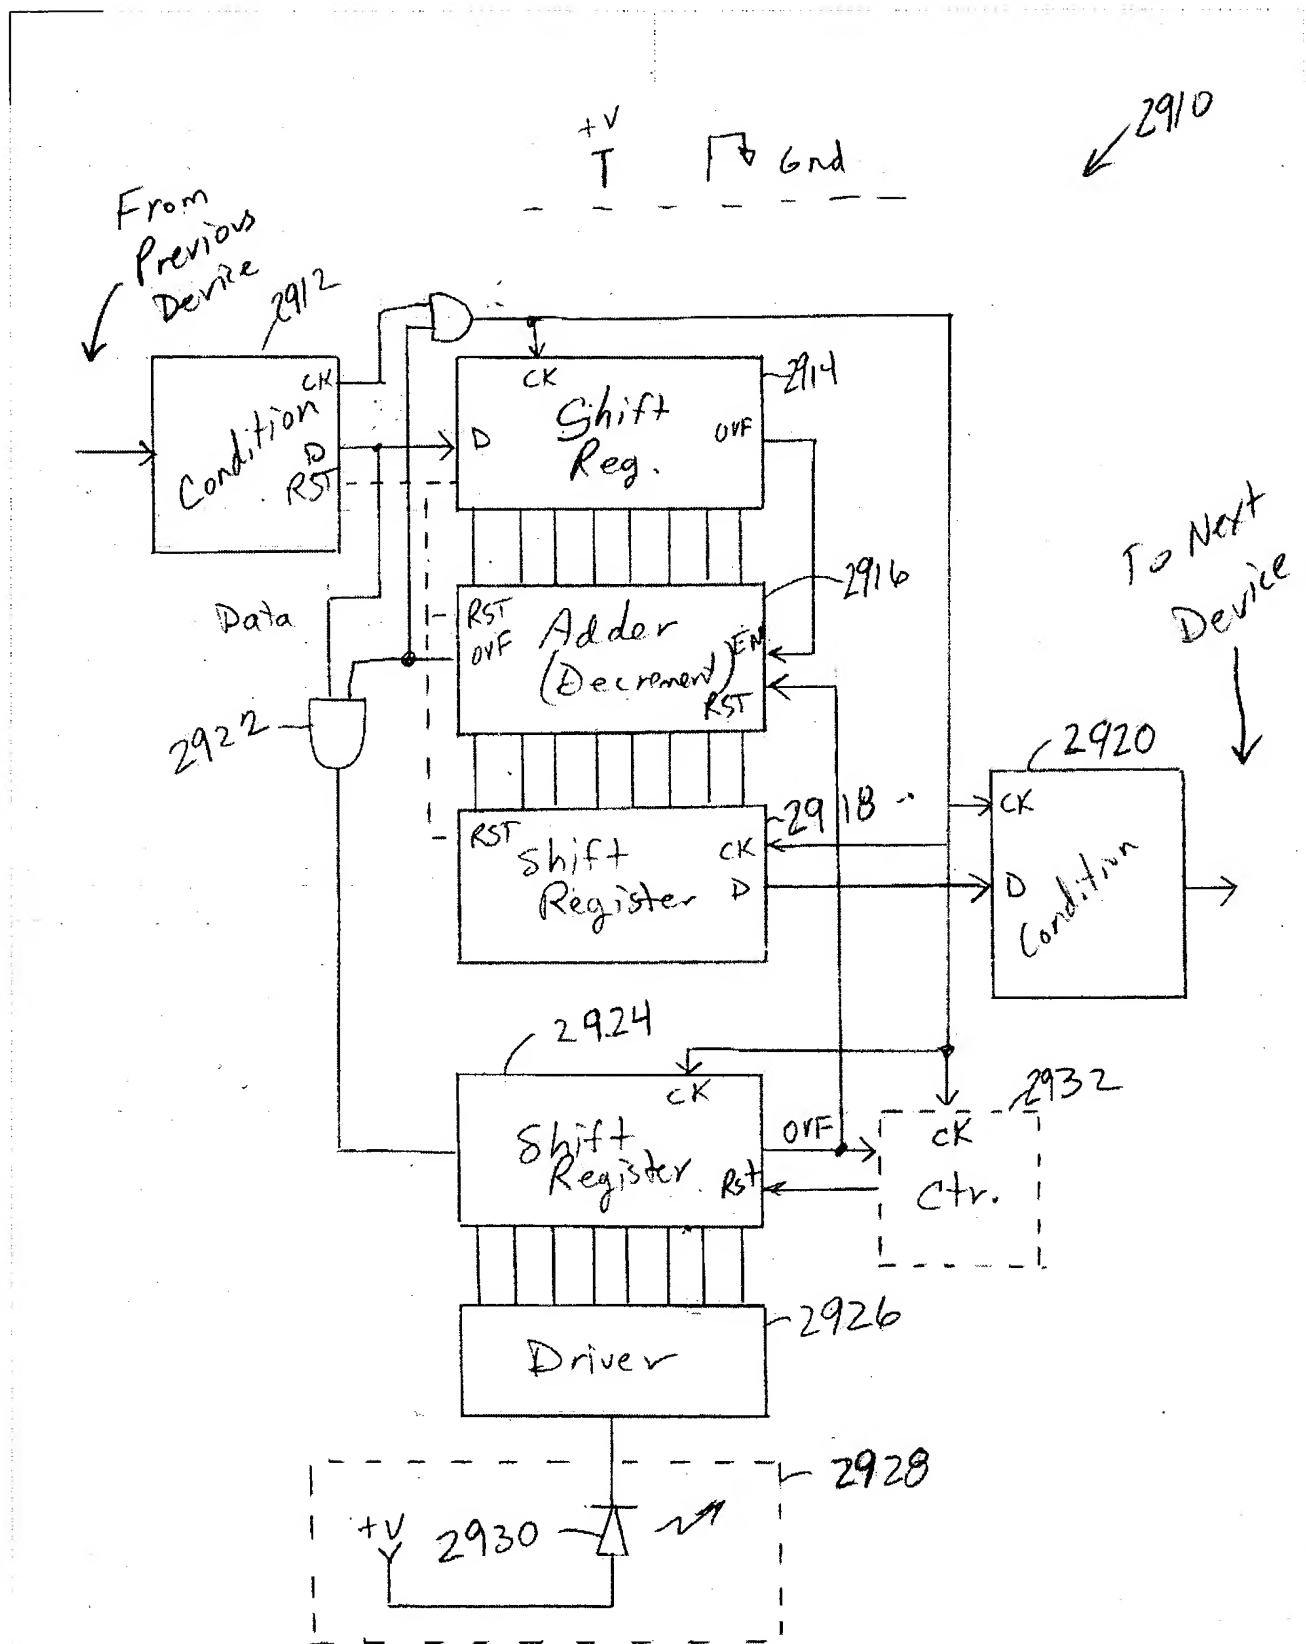 +V
Gnd
2910
From
Previous
Device
2912
CK
Condition
D
RST
CK
Shift
Reg.
D
OVF
2914
To Next
Device
Data
RST
OVF
Adder
(Decrement)
EN
RST
2916
2922
RST
Shift
Register
CK
D
2918
2920
CK
D
Condition
2924
CK
Shift
Register
OVF
Rst
2932
CK
Ctr.
Driver
2926
2928
+V
2930